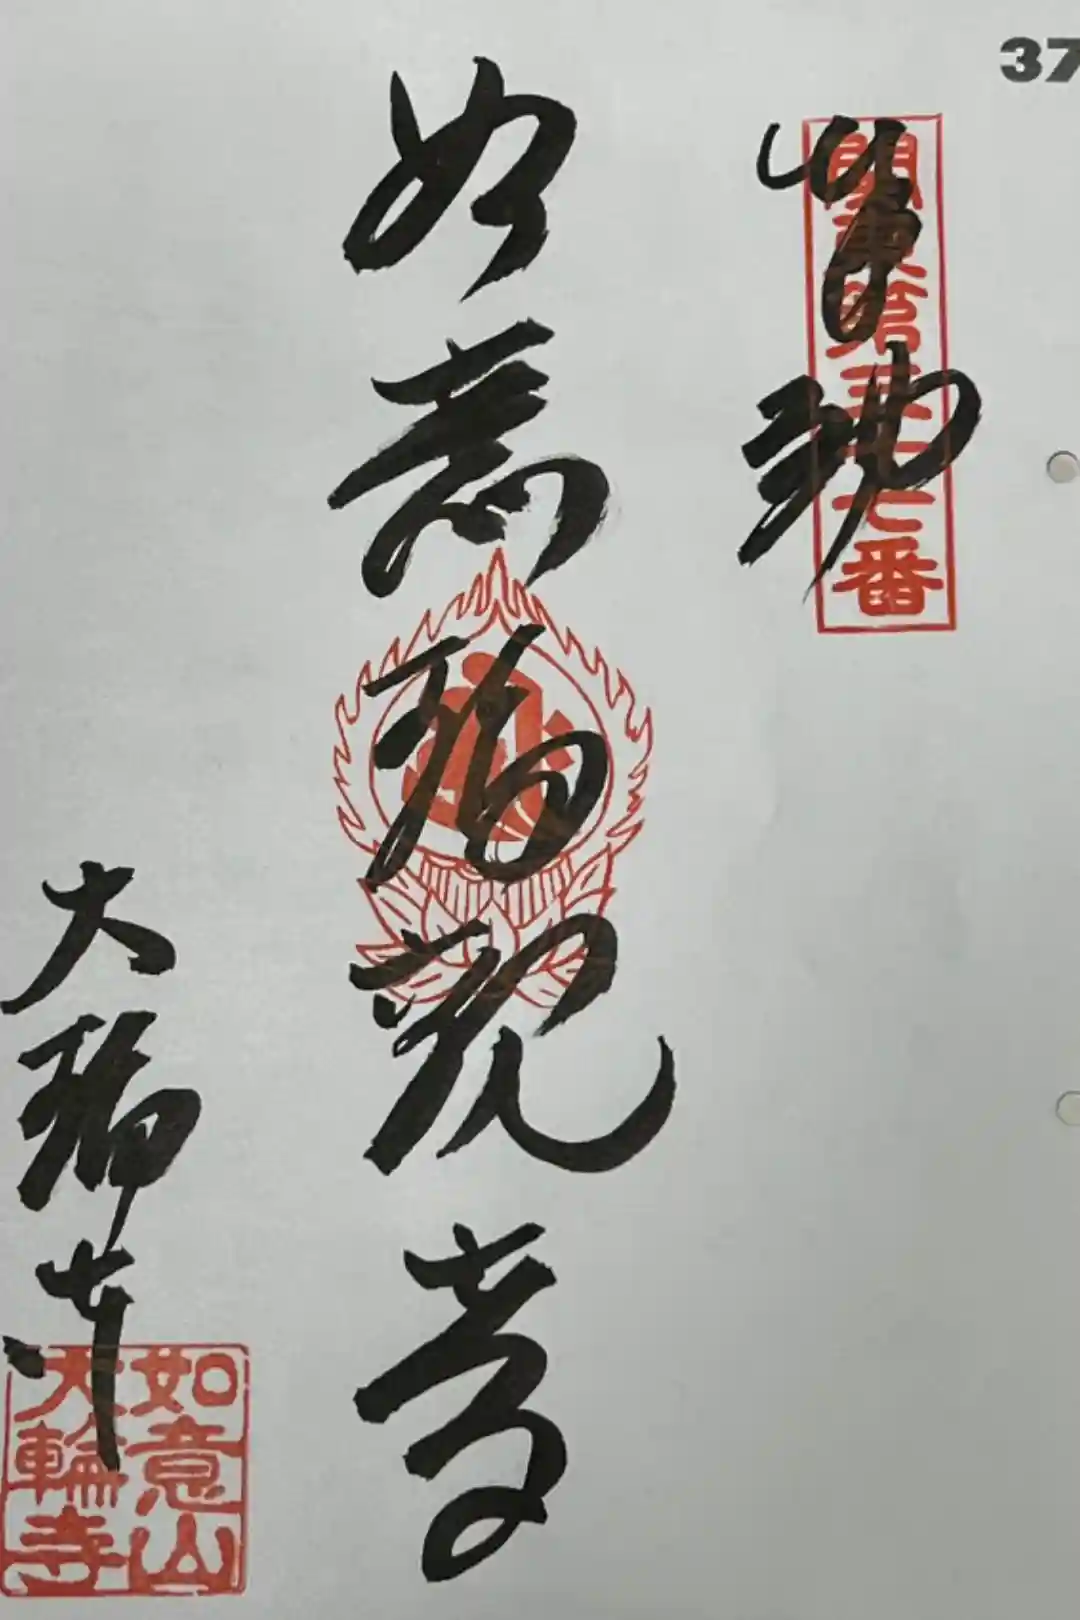 37
奉拝
關東第三十七番
如意輪観音
大輪寺
如意山
大輪寺